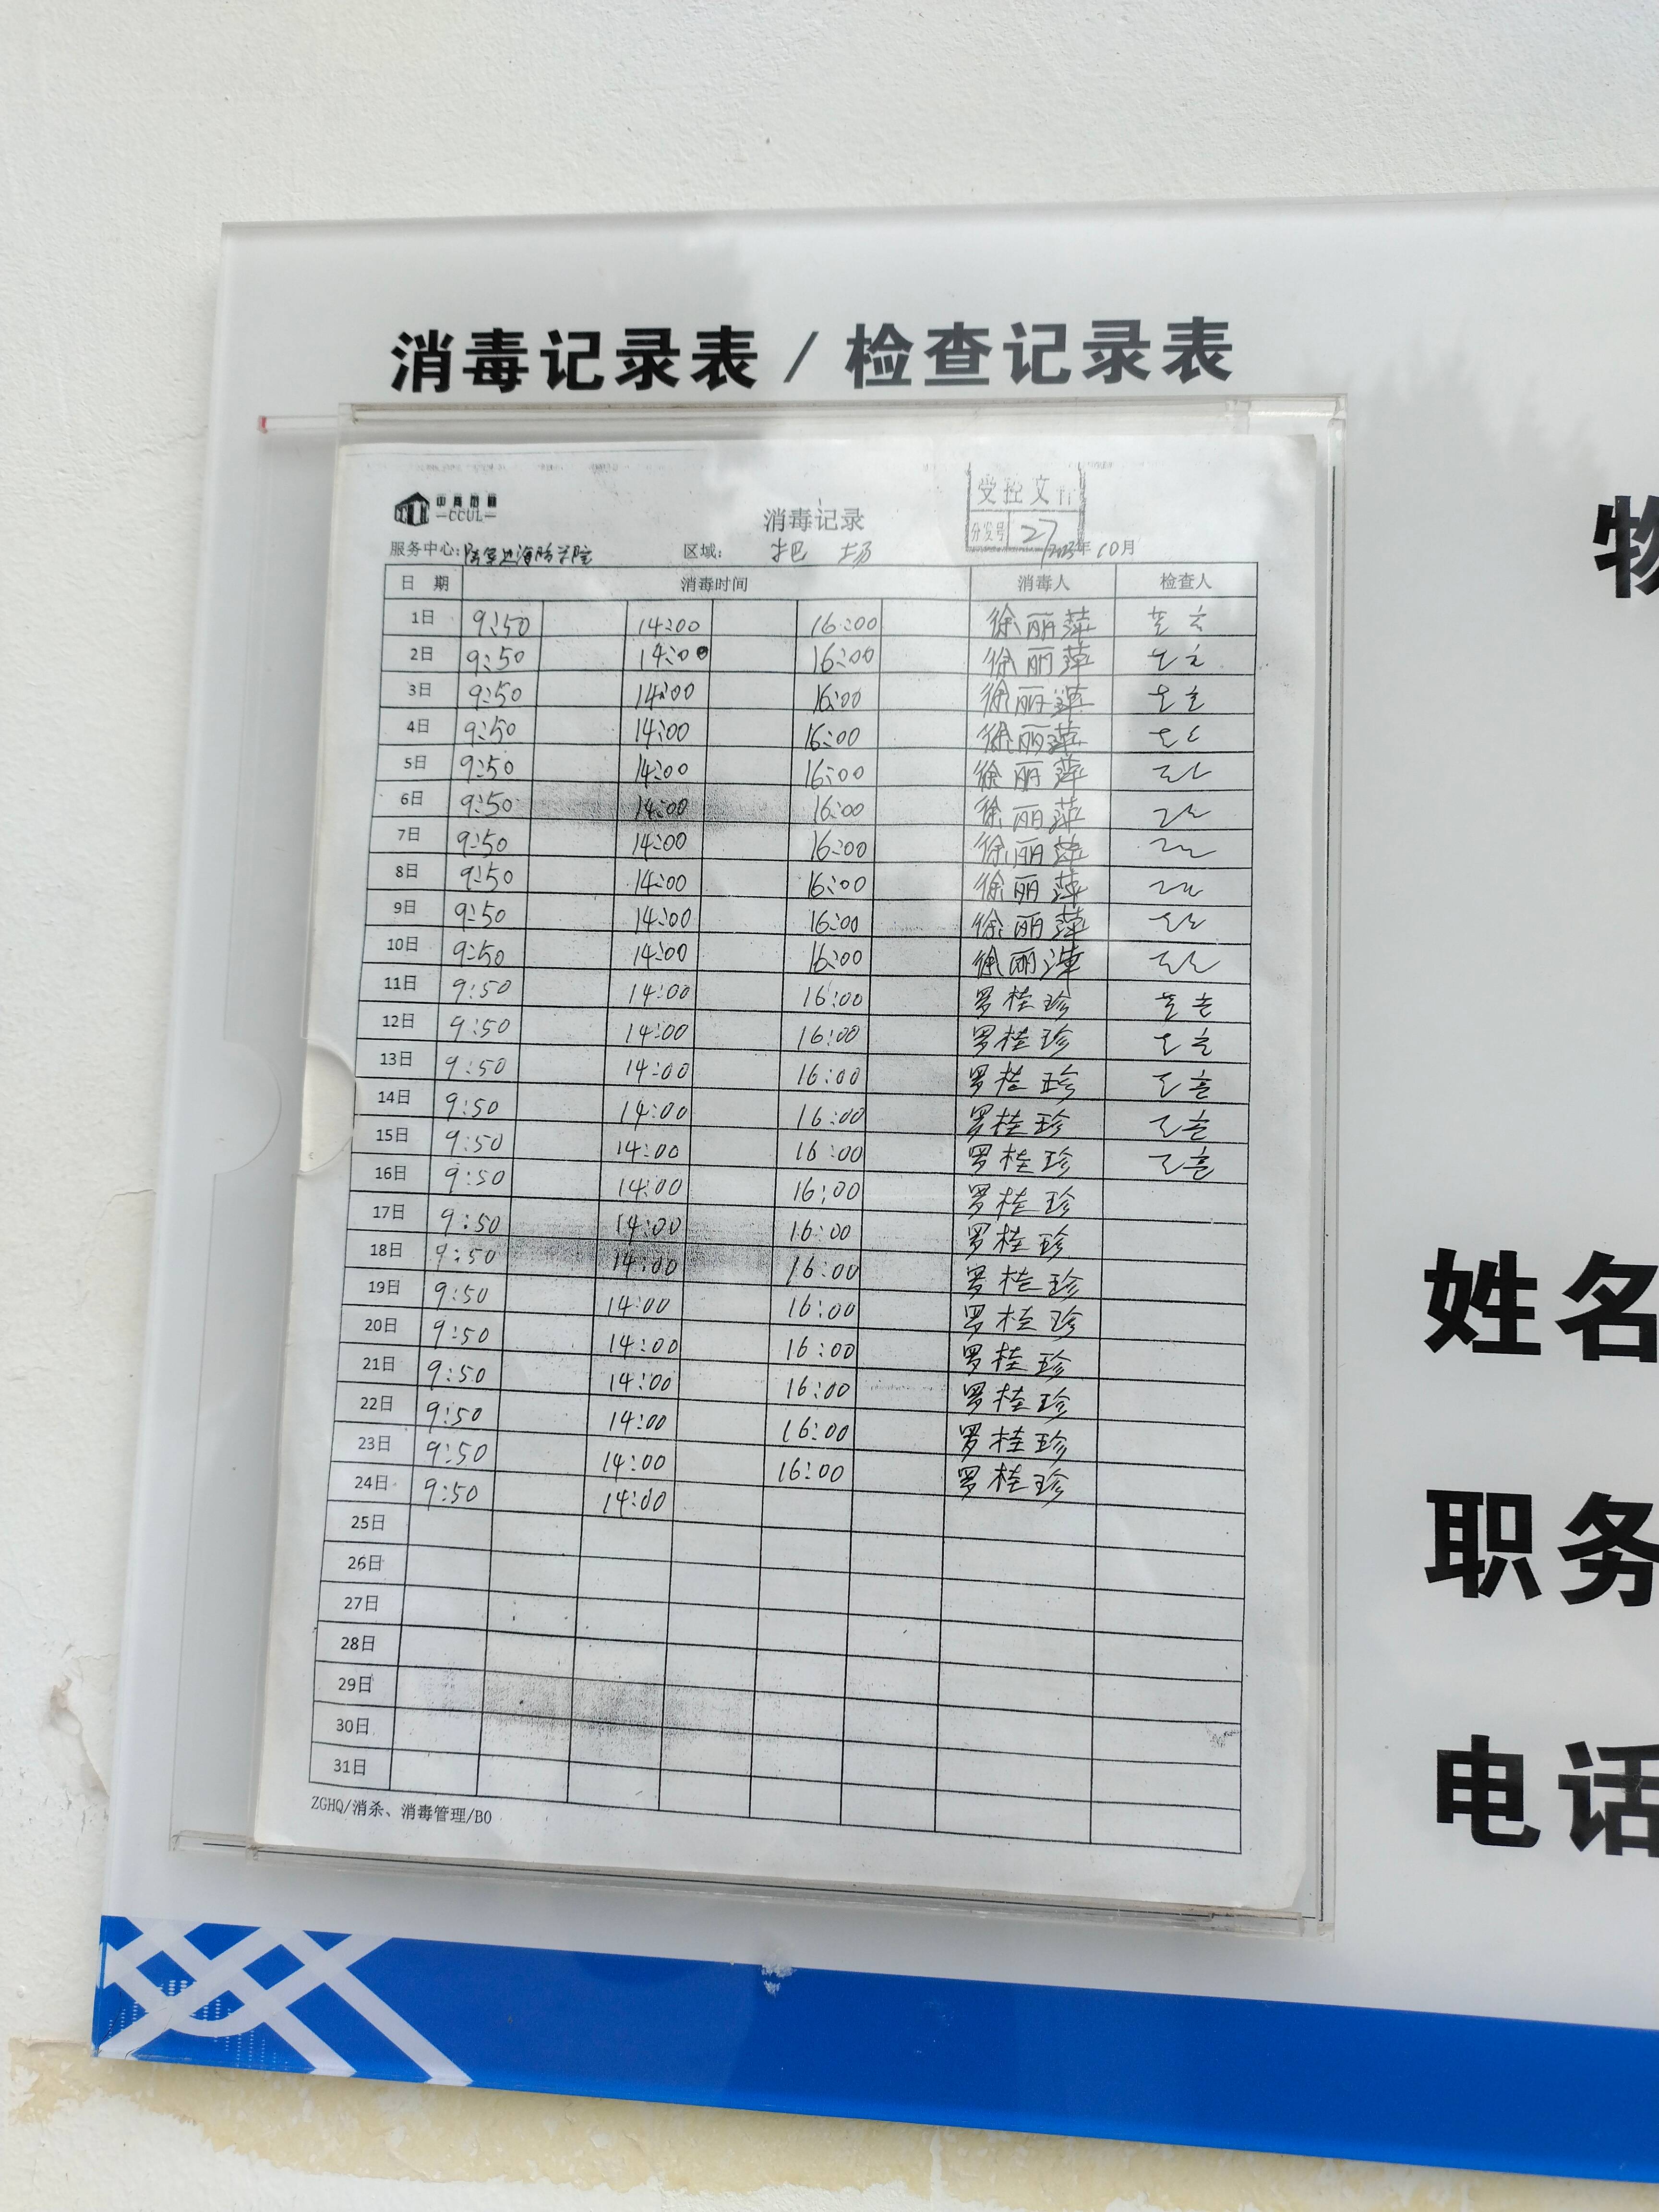 消毒记录表 / 检查记录表
物
姓名
职务
电话
CCUL
受控文件
分发号 27
消毒记录
服务中心: 区域: 靶 场 年 10月
日 期 消毒时间 消毒人 检查人
1日 9:50 14:00 16:00 徐丽萍
2日 9:50 14:00 16:00 徐丽萍
3日 9:50 14:00 16:00 徐丽萍
4日 9:50 14:00 16:00 徐丽萍
5日 9:50 14:00 16:00 徐丽萍
6日 9:50 14:00 16:00 徐丽萍
7日 9:50 14:00 16:00 徐丽萍
8日 9:50 14:00 16:00 徐丽萍
9日 9:50 14:00 16:00 徐丽萍
10日 9:50 14:00 16:00 徐丽萍
11日 9:50 14:00 16:00 罗桂珍
12日 9:50 14:00 16:00 罗桂珍
13日 9:50 14:00 16:00 罗桂珍
14日 9:50 14:00 16:00 罗桂珍
15日 9:50 14:00 16:00 罗桂珍
16日 9:50 14:00 16:00 罗桂珍
17日 9:50 14:00 16:00 罗桂珍
18日 9:50 14:00 16:00 罗桂珍
19日 9:50 14:00 16:00 罗桂珍
20日 9:50 14:00 16:00 罗桂珍
21日 9:50 14:00 16:00 罗桂珍
22日 9:50 14:00 16:00 罗桂珍
23日 9:50 14:00 16:00 罗桂珍
24日 9:50 14:00
25日
26日
27日
28日
29日
30日
31日
ZGHQ/消杀、消毒管理/B0